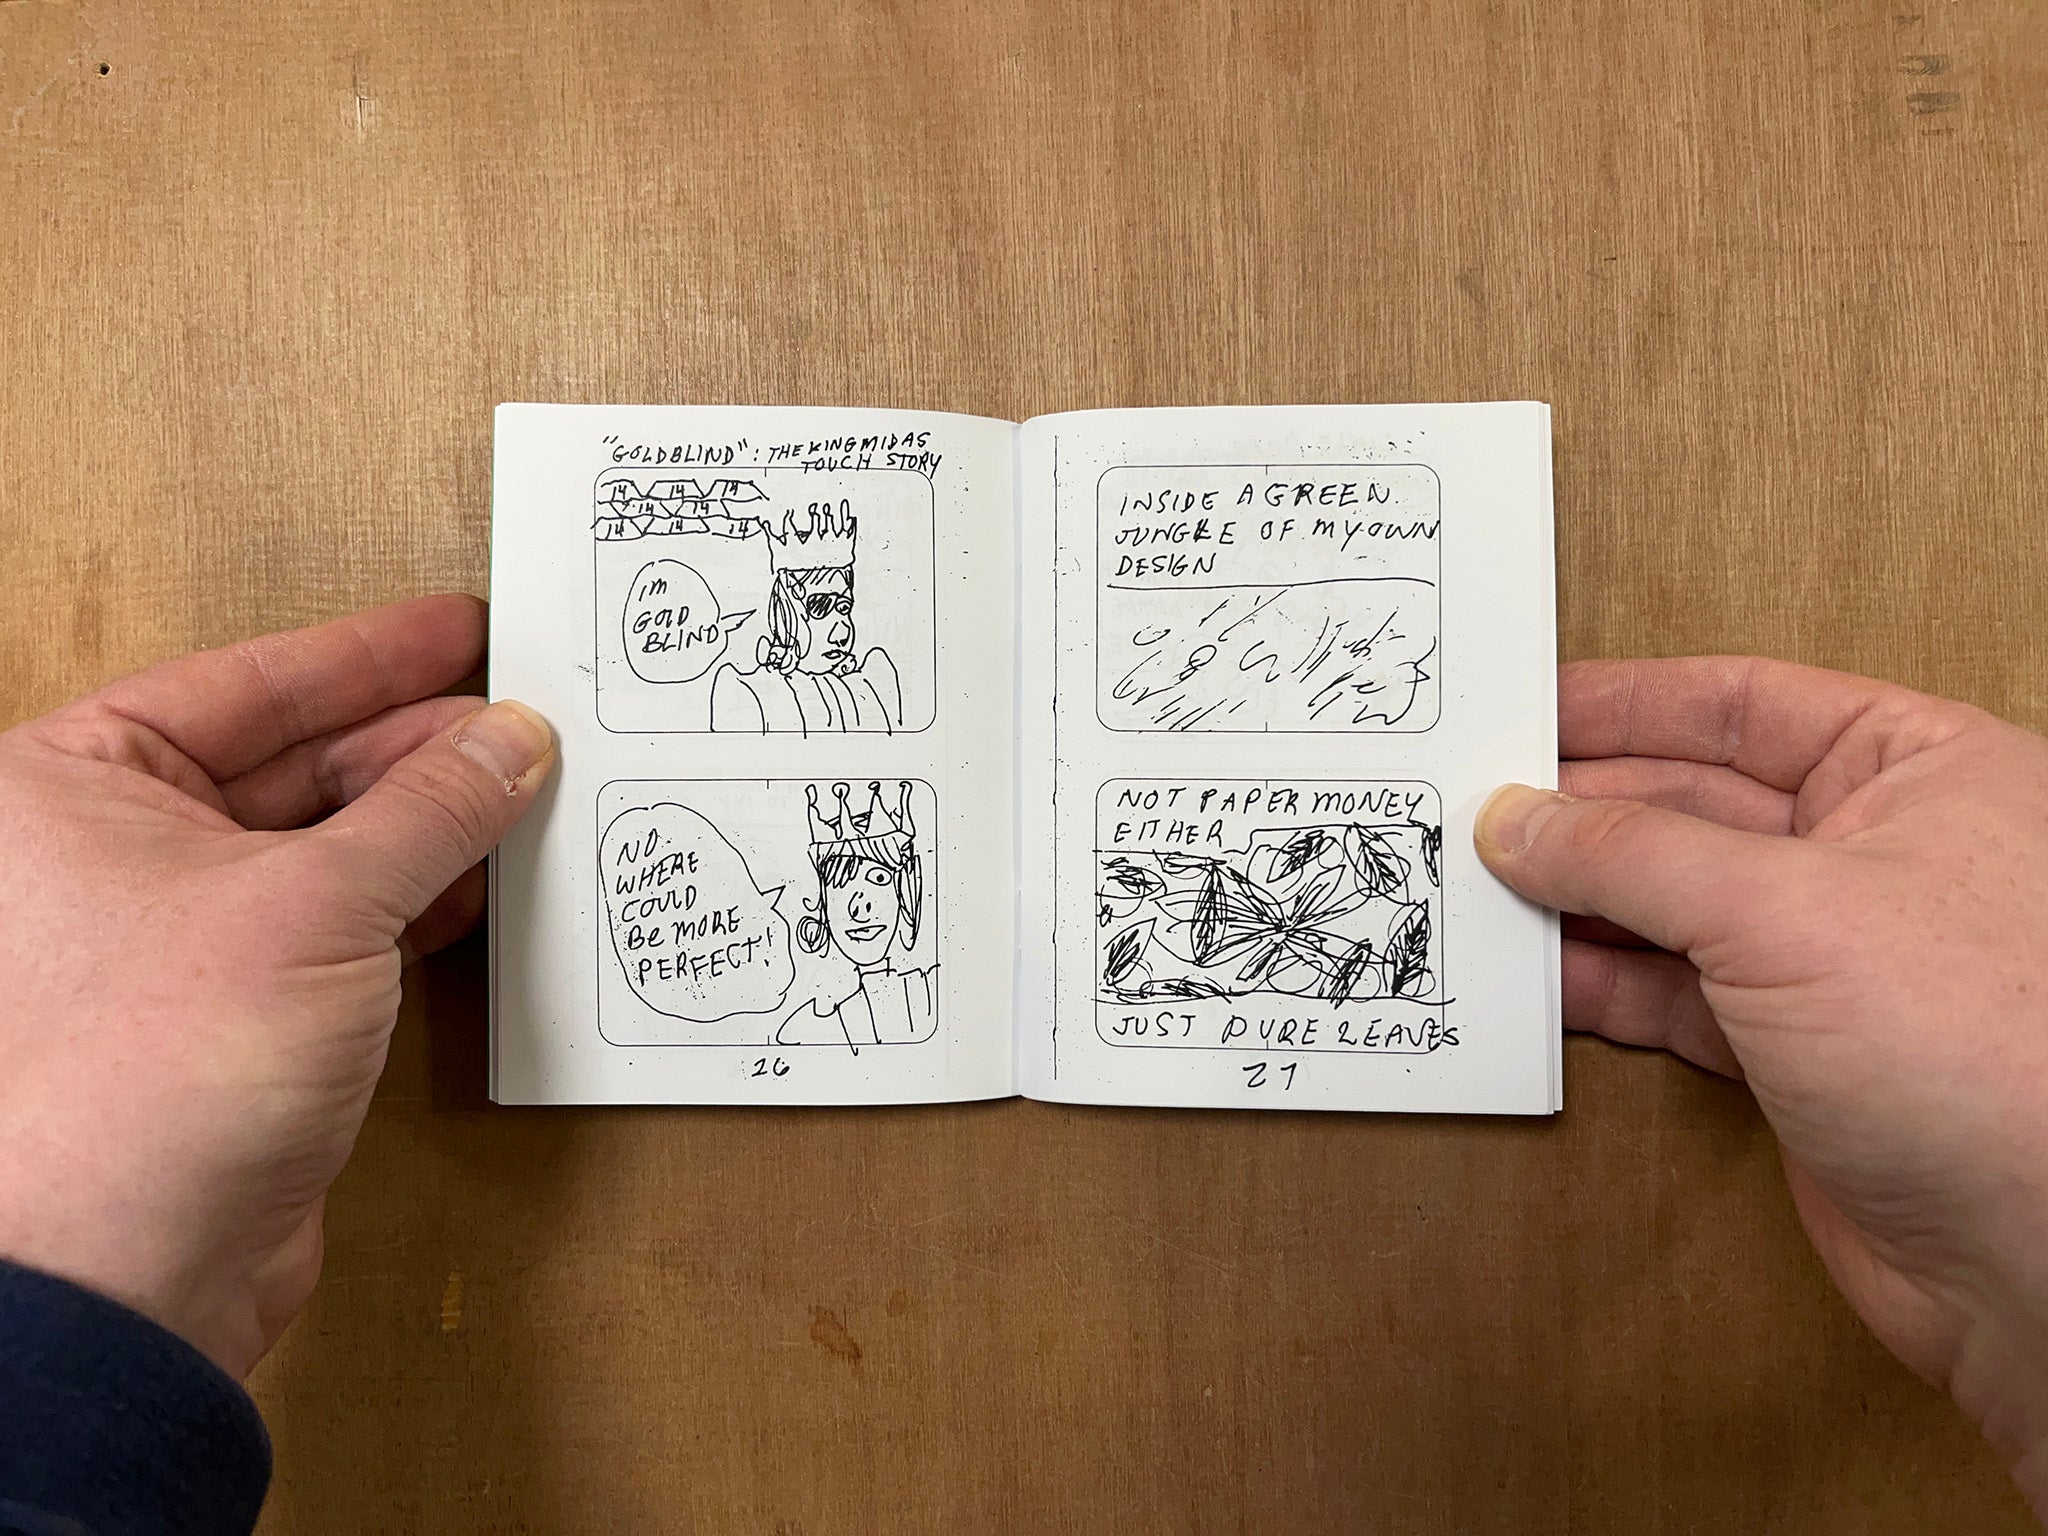 "GOLDBLIND": THE KING MIDAS
TOUCH STORY
14 14 14
14 14
14 14 14
I'M
GOLD
BLIND
NO
WHERE
COULD
Be MORE
PERFECT!
26
INSIDE A GREEN
JUNGLE OF MY OWN
DESIGN
NOT PAPER MONEY
EITHER
JUST PURE LEAVES
27